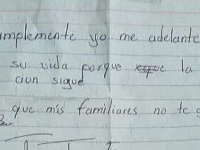 implemente yo me adelante
su vida porque la
aun sigue
que mis familiares no te